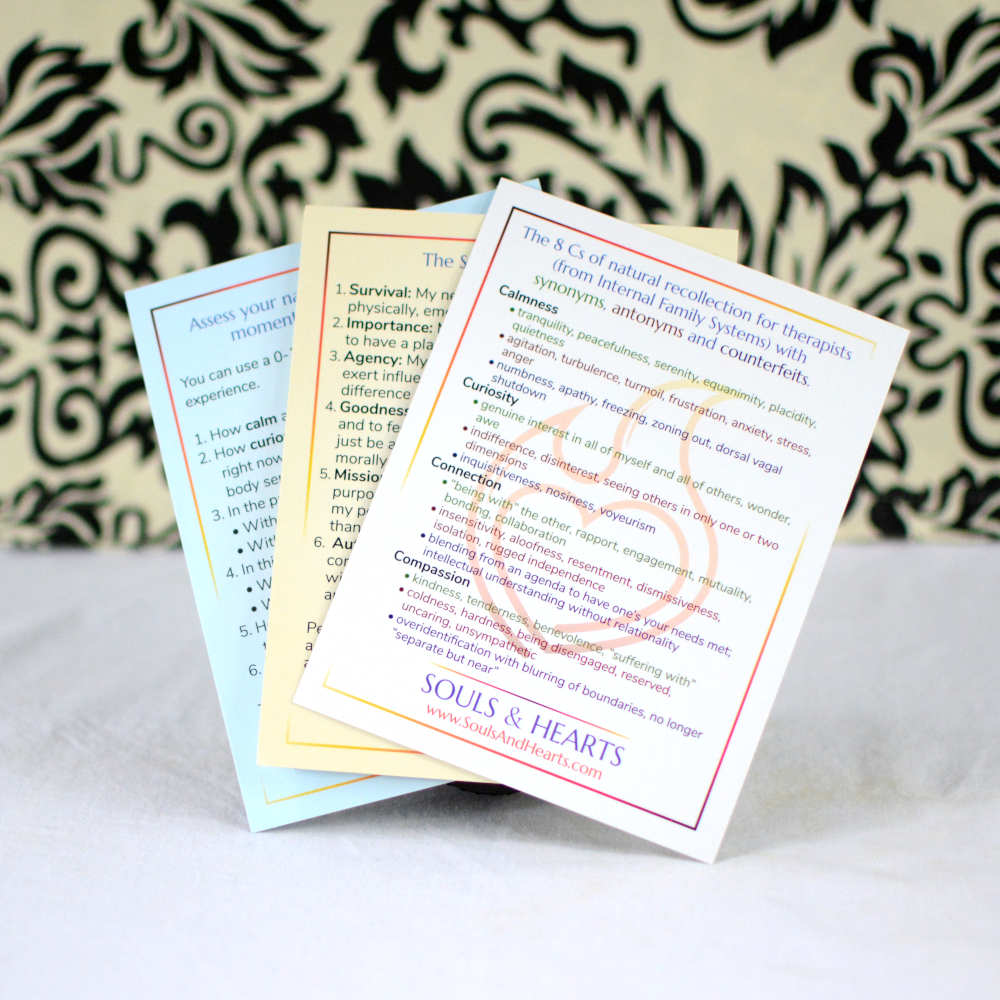 Assess your na
moment
You can use a 0-
experience.
1. How calm a
2. How curio
right now
body se
3. In the p
• With
• Wit
4. In thi
• W
• W
5. H
6.
The S
1. Survival: My ne
physically, emo
2. Importance: M
to have a pla
3. Agency: My
exert influe
difference
4. Goodness
and to fe
just be a
morally
5. Missio
purpo
my p
than
6. Au
con
wi
a
Pe
a
The 8 Cs of natural recollection for therapists
(from Internal Family Systems) with
synonyms, antonyms and counterfeits.
Calmness
• tranquility, peacefulness, serenity, equanimity, placidity,
quietness
• agitation, turbulence, turmoil, frustration, anxiety, stress,
anger
• numbness, apathy, freezing, zoning out, dorsal vagal
shutdown
Curiosity
• genuine interest in all of myself and all of others, wonder,
awe
• indifference, disinterest, seeing others in only one or two
dimensions
• inquisitiveness, nosiness, voyeurism
Connection
• "being with" the other, rapport, engagement, mutuality,
bonding, collaboration
• insensitivity, aloofness, resentment, dismissiveness,
isolation, rugged independence
• blending from an agenda to have one's your needs met;
intellectual understanding without relationality
Compassion
• kindness, tenderness, benevolence, "suffering with"
• coldness, hardness, being disengaged, reserved,
uncaring, unsympathetic
• overidentification with blurring of boundaries, no longer
"separate but near"
SOULS & HEARTS
www.SoulsAndHearts.com